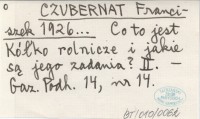 CZUBERNAT Franci-
szek 1926... Co to jest
Kółko rolnicze i jakie
są jego zadania? II. –
Gaz. Podh. 14, nr 14.
BJ/010/0062